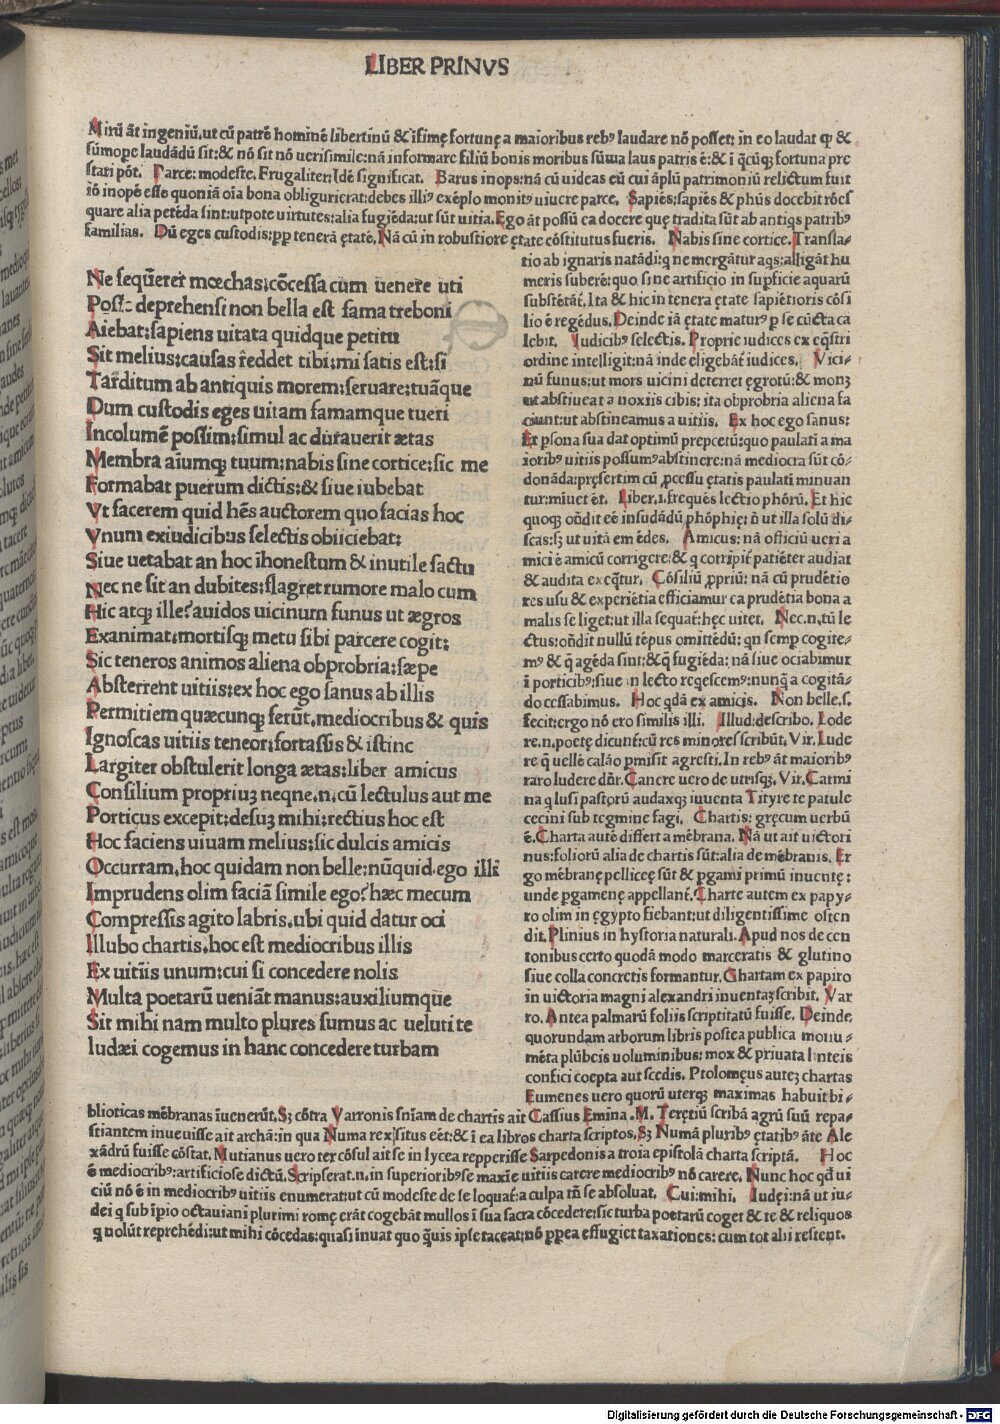 LIBER PRINVS
Mirū āt ingeniū,ut cū patrē hominē libertinū & ĩfimę fortunę a maioribus rebꝰ laudare nō posset: in eo laudat qƀ &
sūmope laudādū sit:& nō sit nō uerisimile:nā informare filiū bonis moribus sūma laus patris ē:& ĩ q̄cūqꝫ fortuna pre
stari pōt. Parce: modeste, Frugaliter: Idē significat. Barus inops: nā cū uideas eū cui āplū patrimoniū relictum fuit
iō inopē esse quoniā oīa bona obligurierat:debes illiꝰ exēplo monitꝰ uiuere parce. Sapiēs:sapiēs & phūs docebit rōes
quare alia petēda sint:utpote uirtutes:alia fugiēda:ut sūt uitia. Ego āt possū ea docere quę tradita sūt ab antiq̄s patribꝰ
familias. Dū eges custodis:pp tenerā ętatē. Nā cū in robustiore ętate cōstitutus fueris. Nabis sine cortice. Transla-
tio ab ignaris natādi:q ne mergātur aqs:alligāt hu
meris suberē:quo sine artificio in supficie aquarū
substētāt. Ita & hic in tenera ętate sapiētioris cōsi
lio ē regēdus. Deinde iā ętate maturꝰ p se cūcta ca
lebit. Iudicibꝰ selectis. Proprie iudices ex eq̄stri
ordine intelligit:nā inde eligebāt iudices. Vici-
nū funus:ut mors uicini deterret ęgrotū:& monꝫ
ut abstiueat a noxiis cibis: ita obprobria aliena fa
ciunt:ut abstineamus a uitiis. Ex hoc ego sanus:
Et psona sua dat optimū prepcetū:quo paulati a ma
ioribꝰ uitiis possumꝰabstinere:nā mediocra sūt cō-
donāda:pręsertim cū ꝓcessu ętatis paulati minuan
tur:miuet ēt. Liber.i.frequēs lectio phōrū. Et hic
quoqꝫ oñdit eē insudādū phōphię: ñ ut illa solū di-
scas:sꝫ ut uitā em ēdes. Amicus: nā officiū ueri a
mici ē amicū corrigere: & q corripit patiēter audiat
& audita exeq̄tur. Cōsiliū ꝓpriū: nā cū prudētio
res usu & experiētia efficiamur ea prudētia bona a
malis se liget:ut illa sequat:hęc uitet. Nec.n.tū le
ctus:oñdit nullū tēpus omittēdū: qn semp cogite-
mꝰ & q̄ agēda sint:&q̄ fugiēda: nā siue ociabimur
ĩ porticibꝰ:siue in lecto reqescemꝰ:nunq̄ a cogitā-
do cessabimus. Hoc qdā ex amicis. Non belle.s.
fecit:ergo nō ero similis illi. Illud:describo. Lode
re.n.poetę dicunt:cū res minores scribūt. Vir. Lude
re q̄ uellē calāo pmisit agresti. In rebꝰ āt maioribꝰ
raro ludere dr̄. Canere uero de utrisqꝫ. Vir. Carmi
na q lusi pastorū audaxqꝫ iuuenta Tityre te patule
cecini sub tegmine fagi. Chartis: gręcum uerbū
ē. Charta autē differt a mēbrana. Nā ut ait uictori
nus:foliorū alia de chartis sūt:alia de mēbranis. Er
go mēbranę pellicee sūt & pgami primū inuentę:
unde pgamenę appellant. Charte autem ex papy-
ro olim in ęgypto fiebant:ut diligentissime osten
dit. Plinius in hystoria naturali. Apud nos de cen
tonibus certo quodā modo marceratis & glutino
siue colla concretis formantur. Ghartam ex papiro
in uictoria magni alexandri inuentaꝫ scribit. Var
ro. Antea palmarū foliis scriptitatū fuisse. Deinde
quorundam arborum libris postea publica monu-
mēta plūbeis uoluminibus: mox & priuata linteis
confici coepta aut scedis. Ptolomęus auteꝫ chartas
Eumenes uero quorū uterqꝫ maximas habuit bi-
Ne seqūerer mœchas:cōcessa cum uenere uti
Posse deprehensi non bella est fama treboni
Aiebat:sapiens uitata quidque petitu
Sit melius:causas reddet tibi:mi satis est:si
Tarditum ab antiquis morem:seruare:tuāque
Dum custodis eges uitam famamque tueri
Incolumē possim:simul ac durauerit ætas
Membra aīumqꝫ tuum:nabis sine cortice:sic me
Formabat puerum dictis:& siue iubebat
Vt facerem quid hēs auctorem quo facias hoc
Vnum exiudicibus selectis obiiciebat:
Siue uetabat an hoc īhonestum & inutile factu
Nec ne sit an dubites:flagret rumore malo cum
Hic atqꝫ ille? auidos uicinum funus ut ægros
Exanimat:mortisqꝫ metu sibi parcere cogit:
Sic teneros animos aliena obprobria:sæpe
Absterrent uitiis:ex hoc ego sanus ab illis
Permitiem quæcunqꝫ ferūt.mediocribus & quis
Ignoscas uitiis teneor:fortassis & istinc
Largiter obstulerit longa ætas:liber amicus
Consilium propriuꝫ neqne.n.cū lectulus aut me
Porticus excepit:desuꝫ mihi:rectius hoc est
Hoc faciens uiuam melius:sic dulcis amicis
Occurram.hoc quidam non belle:nūquid.ego illi
Imprudens olim faciā simile ego?hæc mecum
Compressis agito labris.ubi quid datur oci
Illubo chartis.hoc est mediocribus illis
Ex uitiis unum:cui si concedere nolis
Multa poetarū ueniāt manus:auxiliumque
Sit mihi nam multo plures sumus ac ueluti te
Iudæi cogemus in hanc concedere turbam
blioticas mēbranas īuenerūt. Sꝫ cōtra Varronis sn̄iam de chartis ait Cassius Emina. M. Terētiū scribā agrū suū repa-
stiantem inueuisse ait archā:in qua Numa rex situs eēt:& ĩ ea libros charta scriptos. Sꝫ Numā pluribꝰ ętatibꝰ āte Ale
xādrū fuisse cōstat. Mutianus uero ter cōsul ait se in lycea repperisse Sarpedonis a troia epistolā charta scriptā. Hoc
ē mediocribꝰ:artificiose dictū. Scripserat.n.in superioribꝰse maxīe uitiis carere mediocribꝰ nō carere. Nunc hoc qd̄ ui
ciū nō ē in mediocribꝰ uitiis enumerat:ut cū modeste de se loquat:a culpa tn̄ se absoluat. Cui:mihi. Iudei:nā ut iu-
dei q sub īpio octauiani plurimi romę erāt cogebāt mullos ĩ sua sacra cōcedere:sic turba poetarū coget & te & reliquos
q nolūt reprehēdi:ut mihi cōcedas:quasi inuat quo q̄uis ipse taceat:nō ppea effugiet taxationes: cum tot alii restent.
Digitalisierung gefördert durch die Deutsche Forschungsgemeinschaft - DFG